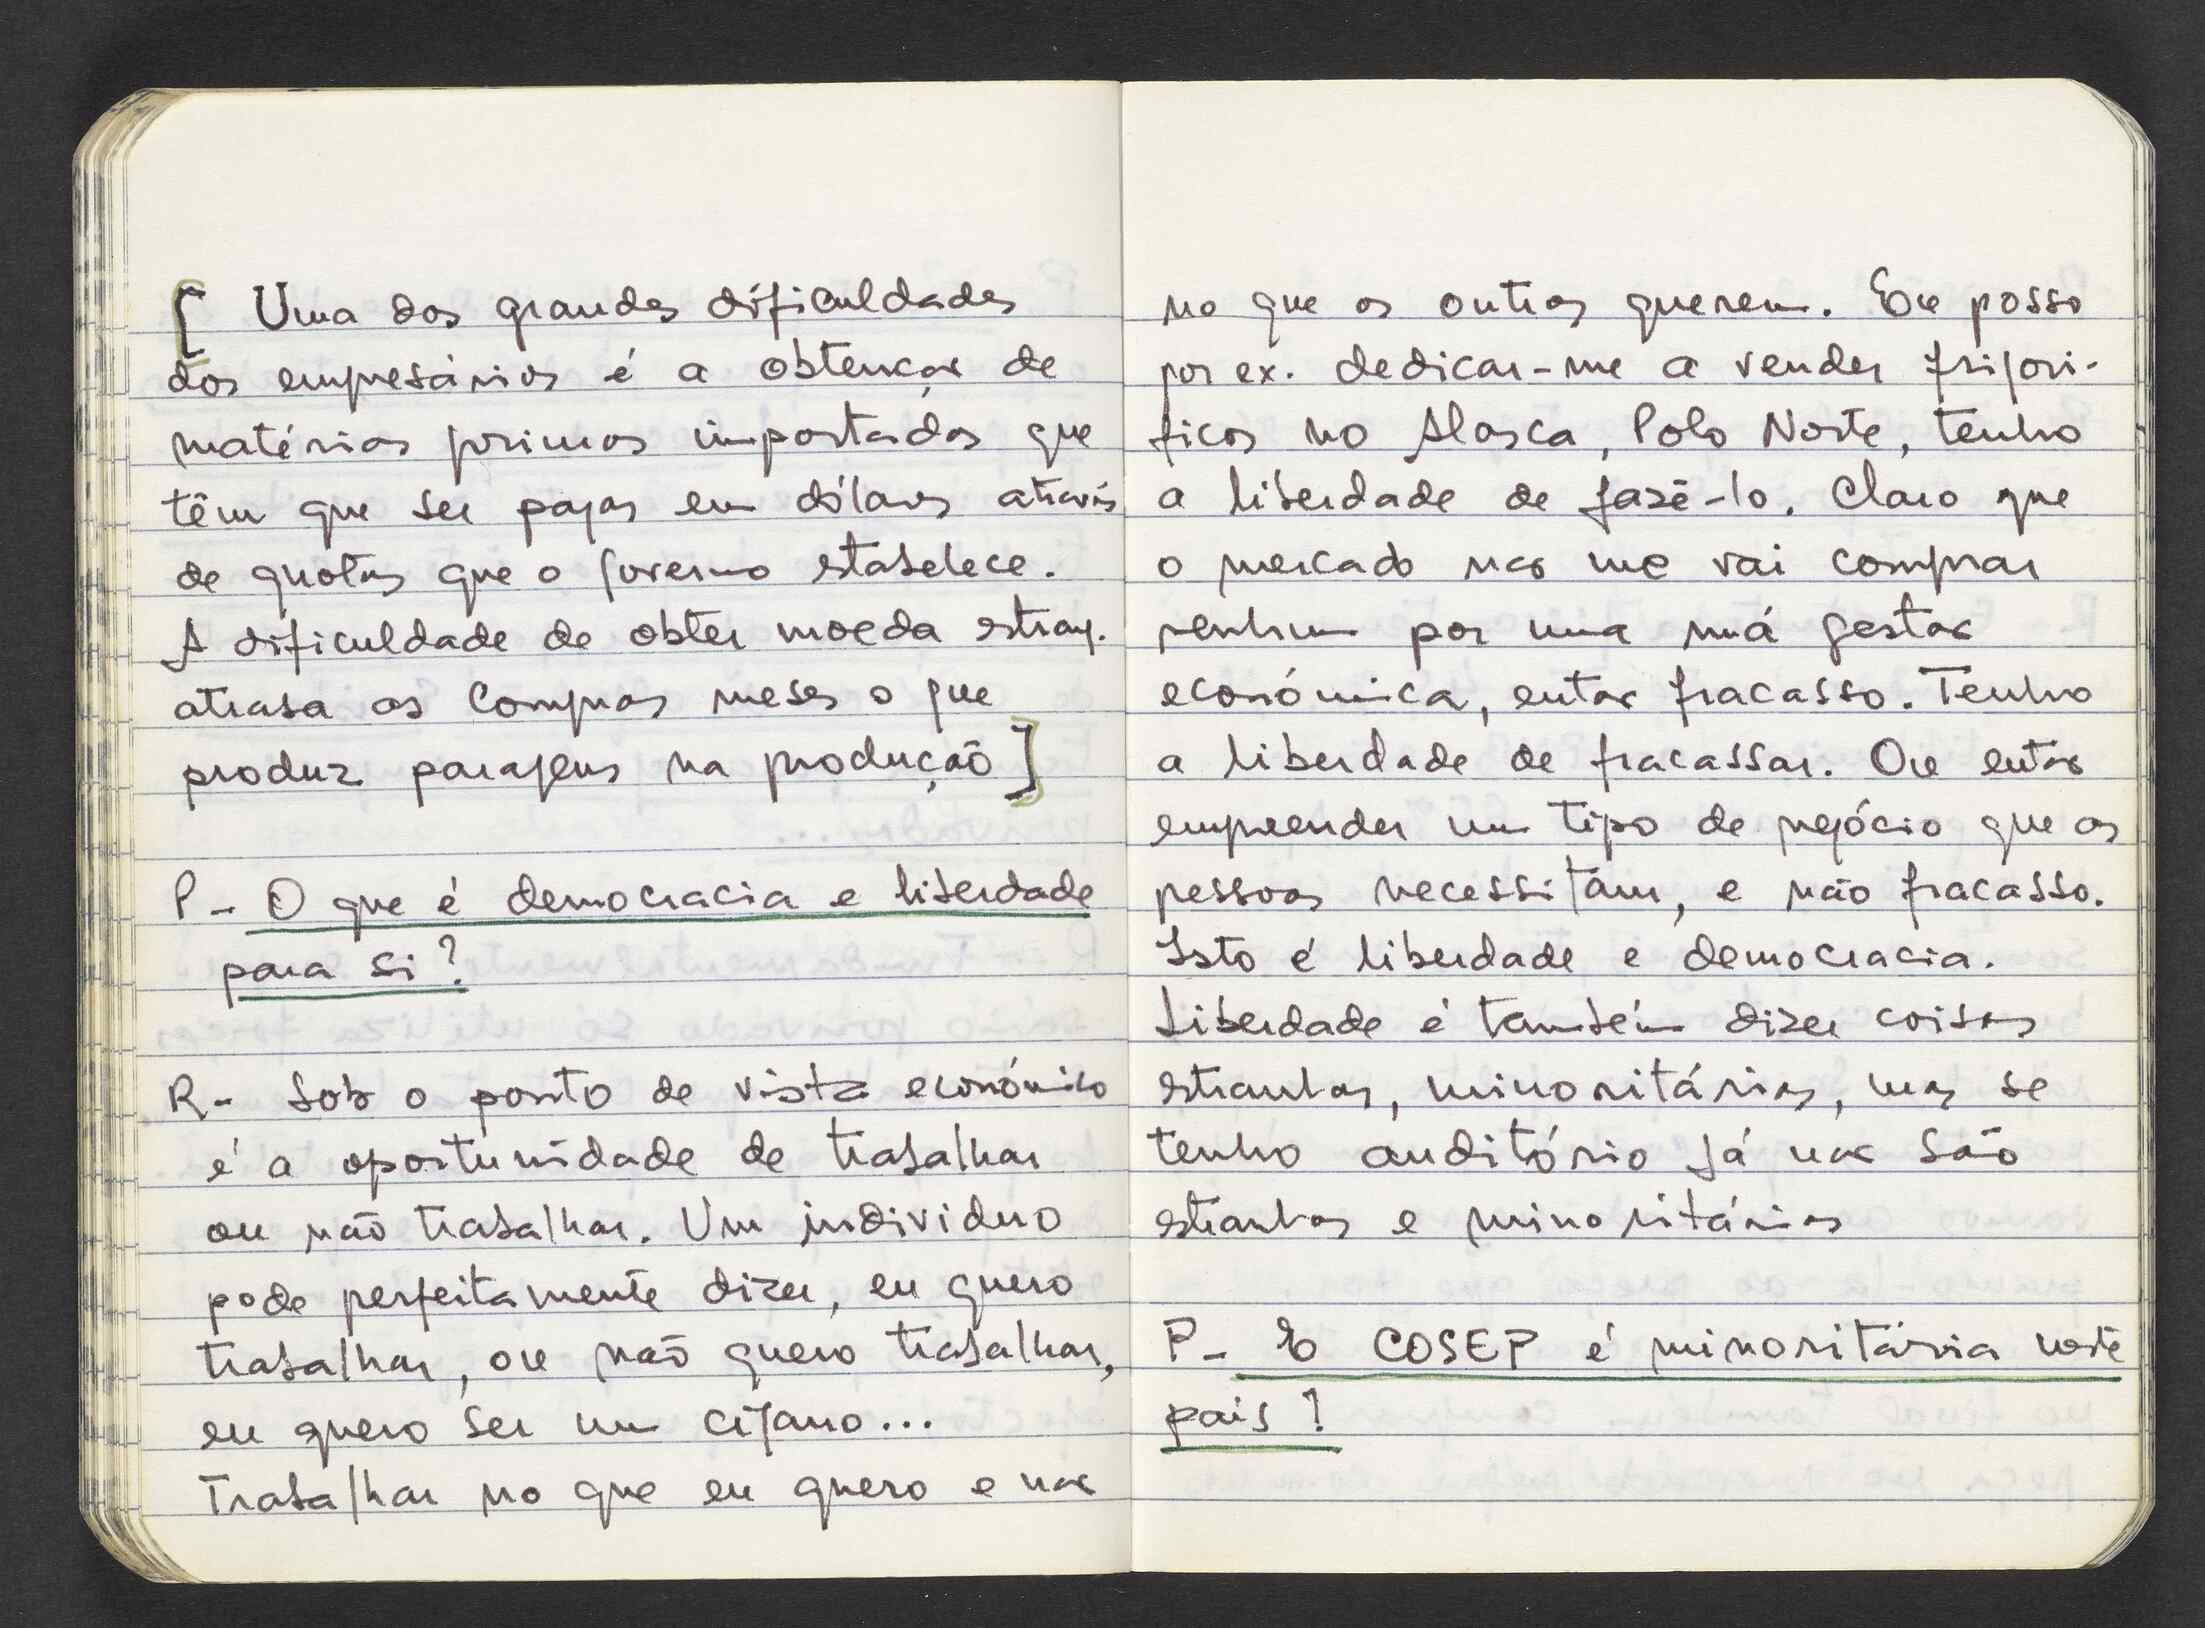 [ Uma das grandes dificuldades
dos empresários é a obtenção de
matérias primas importadas que
têm que ser pagas em dólares através
de quotas que o governo estabelece.
A dificuldade de obter moeda estrang.
atrasa as compras meses o que
produz paragens na produção ]
P- O que é democracia e liberdade
para si?
R- Sob o ponto de vista económico
é a oportunidade de trabalhar
ou não trabalhar. Um individuo
pode perfeitamente dizer, eu quero
trabalhar, ou não quero trabalhar,
eu quero ser um cigano...
Trabalhar no que eu quero e não
no que os outros querem. Eu posso
por ex. dedicar-me a vender frigori-
ficos no Alasca, Polo Norte, tenho
a liberdade de fazê-lo. Claro que
o mercado não me vai comprar
nenhum por uma má gestão
económica, então fracasso. Tenho
a liberdade de fracassar. Ou então
empreender um tipo de negócio que as
pessoas necessitam, e não fracasso.
Isto é liberdade e democracia.
Liberdade é também dizer coisas
estranhas, minoritárias, mas se
tenho auditório já não são
estranhas e minoritárias
P- E COSEP é minoritária neste
pais?